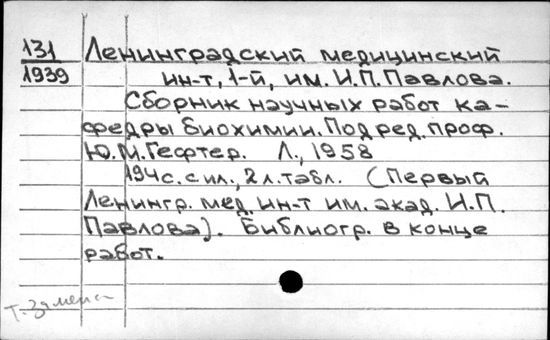 131 Ленинградский медицинский
1939 ин-т, 1-й, им. И.П. Павлова.
Сборник научных работ ка-
федры биохимии. Под ред. проф.
Ю.М. Гефтер. Л., 1958
194 с. с ил., 2 л. табл. (Первый
Ленингр. мед. ин-т им. акад. И.П.
Павлова). Библиогр. в конце
работ.
Т. Замена